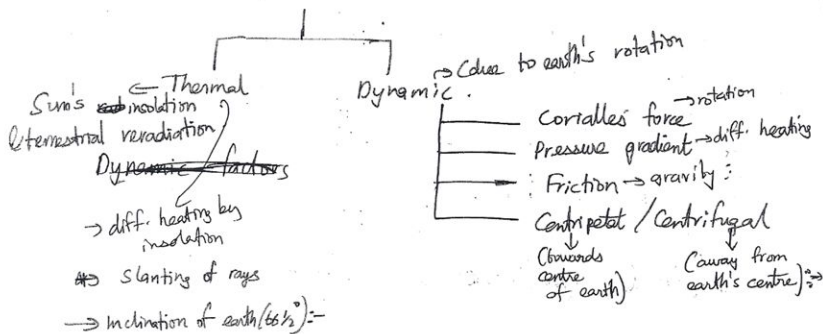 ← Thermal
Sun's insolation
& terrestrial reradiation
Dynamic factors
→ diff. heating by
insolation
→ Slanting of rays
→ Inclination of earth (66 1/2°):-
Dynamic.
→ (due to earth's rotation
Corialles' force → rotation
Pressure gradient → diff. heating
Friction → gravity :
Centripetal / Centrifugal
↓
(towards
centre
of earth)
↓
(away from
earth's centre):→